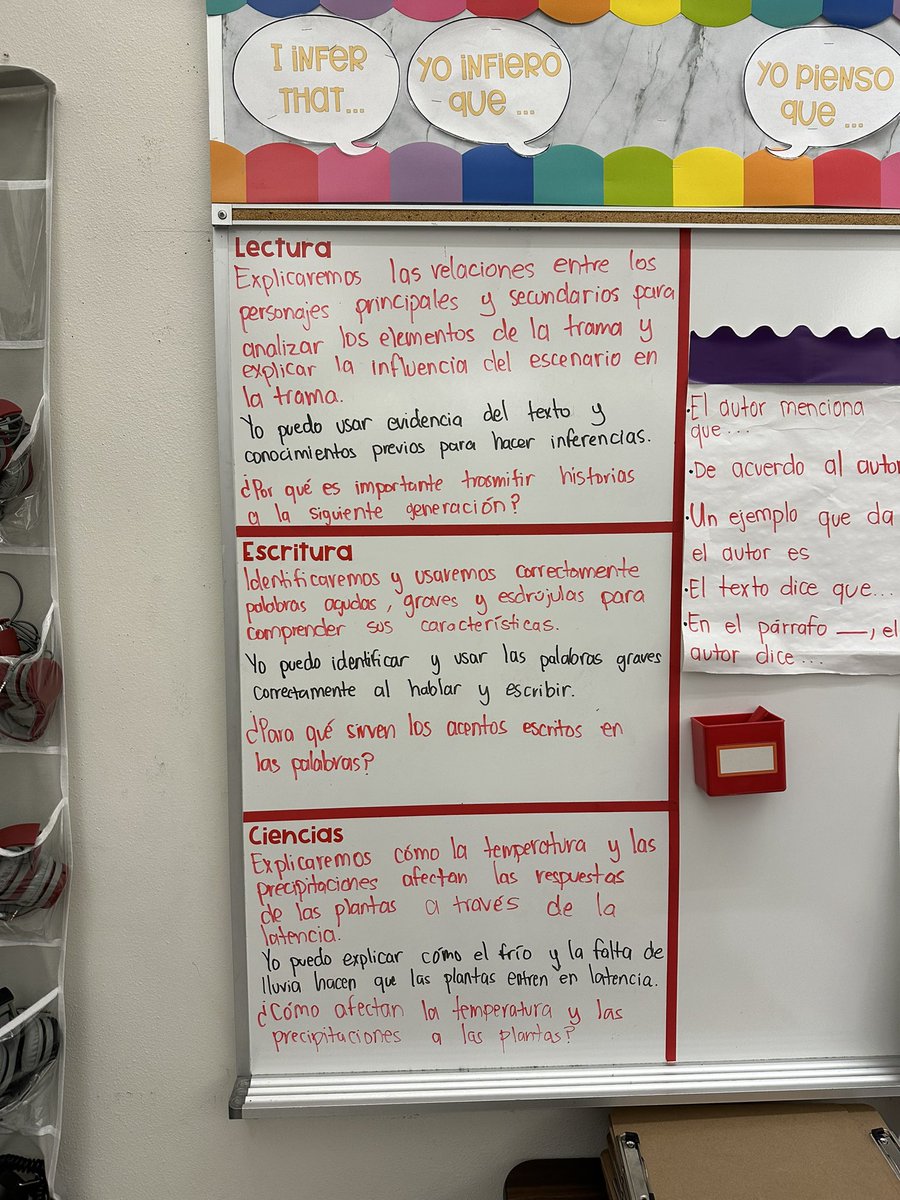 I INFER
THAT...
YO INFIERO
QUE ...
YO PIENSO
QUE ...
Lectura
Explicaremos las relaciones entre los
personajes principales y secundarios para
analizar los elementos de la trama y
explicar la influencia del escenario en
la trama.
Yo puedo usar evidencia del texto y
conocimientos previos para hacer inferencias.
¿Por qué es importante trasmitir historias
a la siguiente generación?
Escritura
Identificaremos y usaremos correctamente
palabras agudas, graves y esdrújulas para
comprender sus características.
Yo puedo identificar y usar las palabras graves
correctamente al hablar y escribir.
¿Para qué sirven los acentos escritos en
las palabras?
Ciencias
Explicaremos cómo la temperatura y las
precipitaciones afectan las respuestas
de las plantas a través de la
latencia.
Yo puedo explicar cómo el frío y la falta de
lluvia hacen que las plantas entren en latencia.
¿Cómo afectan la temperatura y las
precipitaciones a las plantas?
•El autor menciona
que...
•De acuerdo al autor
•Un ejemplo que da
el autor es
•El texto dice que...
•En el párrafo __, el
autor dice...